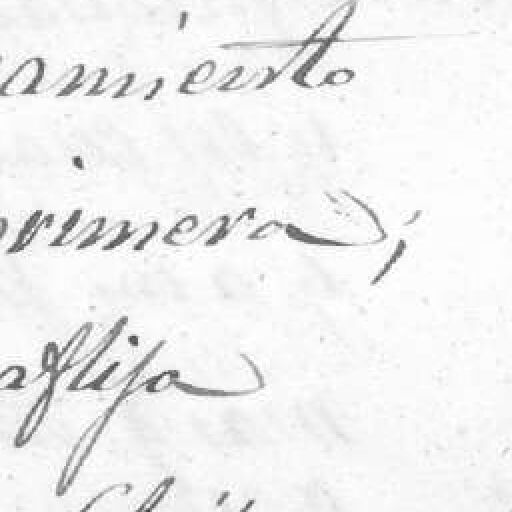 amiento
primera;
aflija